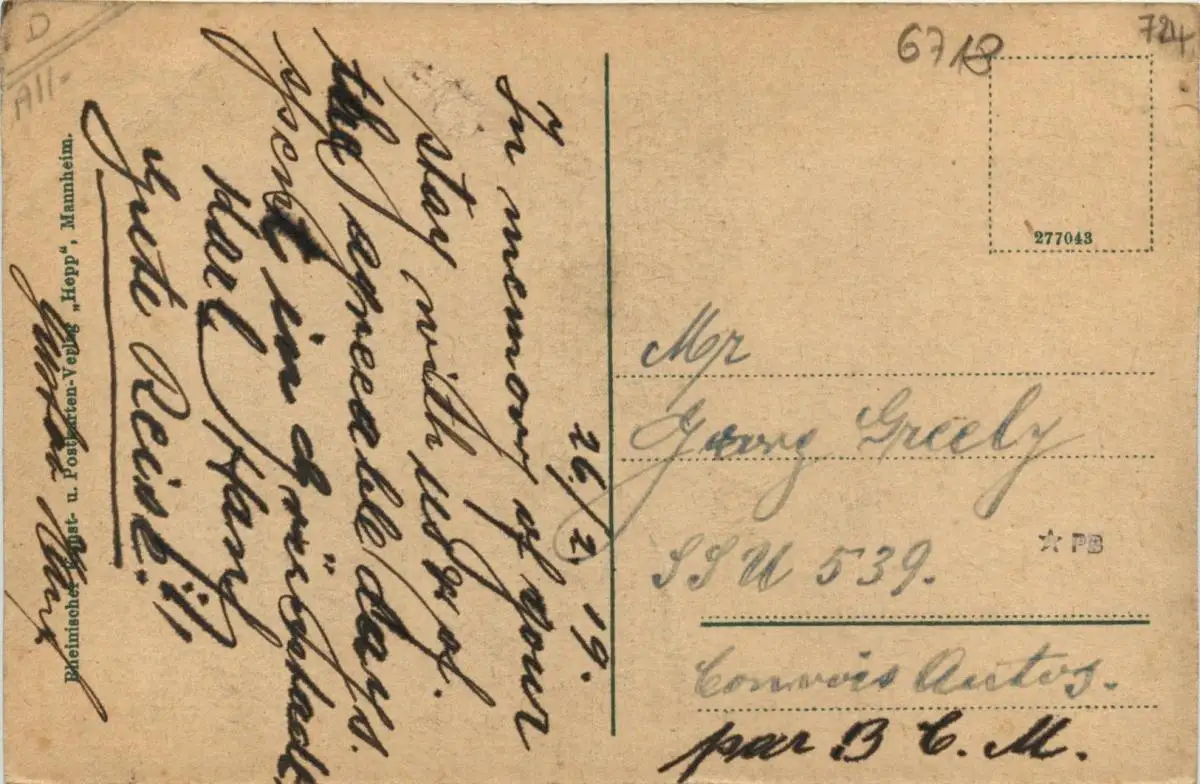 D
All-
6718
724
277043
26/2 19.
In memory of your
stay with us & of
the agreeable days.
spent in Grünstadt
Karl Hany
Gute Reise!
Rheinischer Kunst- u. Postkarten-Verlag „Hepp“, Mannheim.
Mr
Georg Greely
SSU 539.
PB
Convois Autos.
par B C. M.